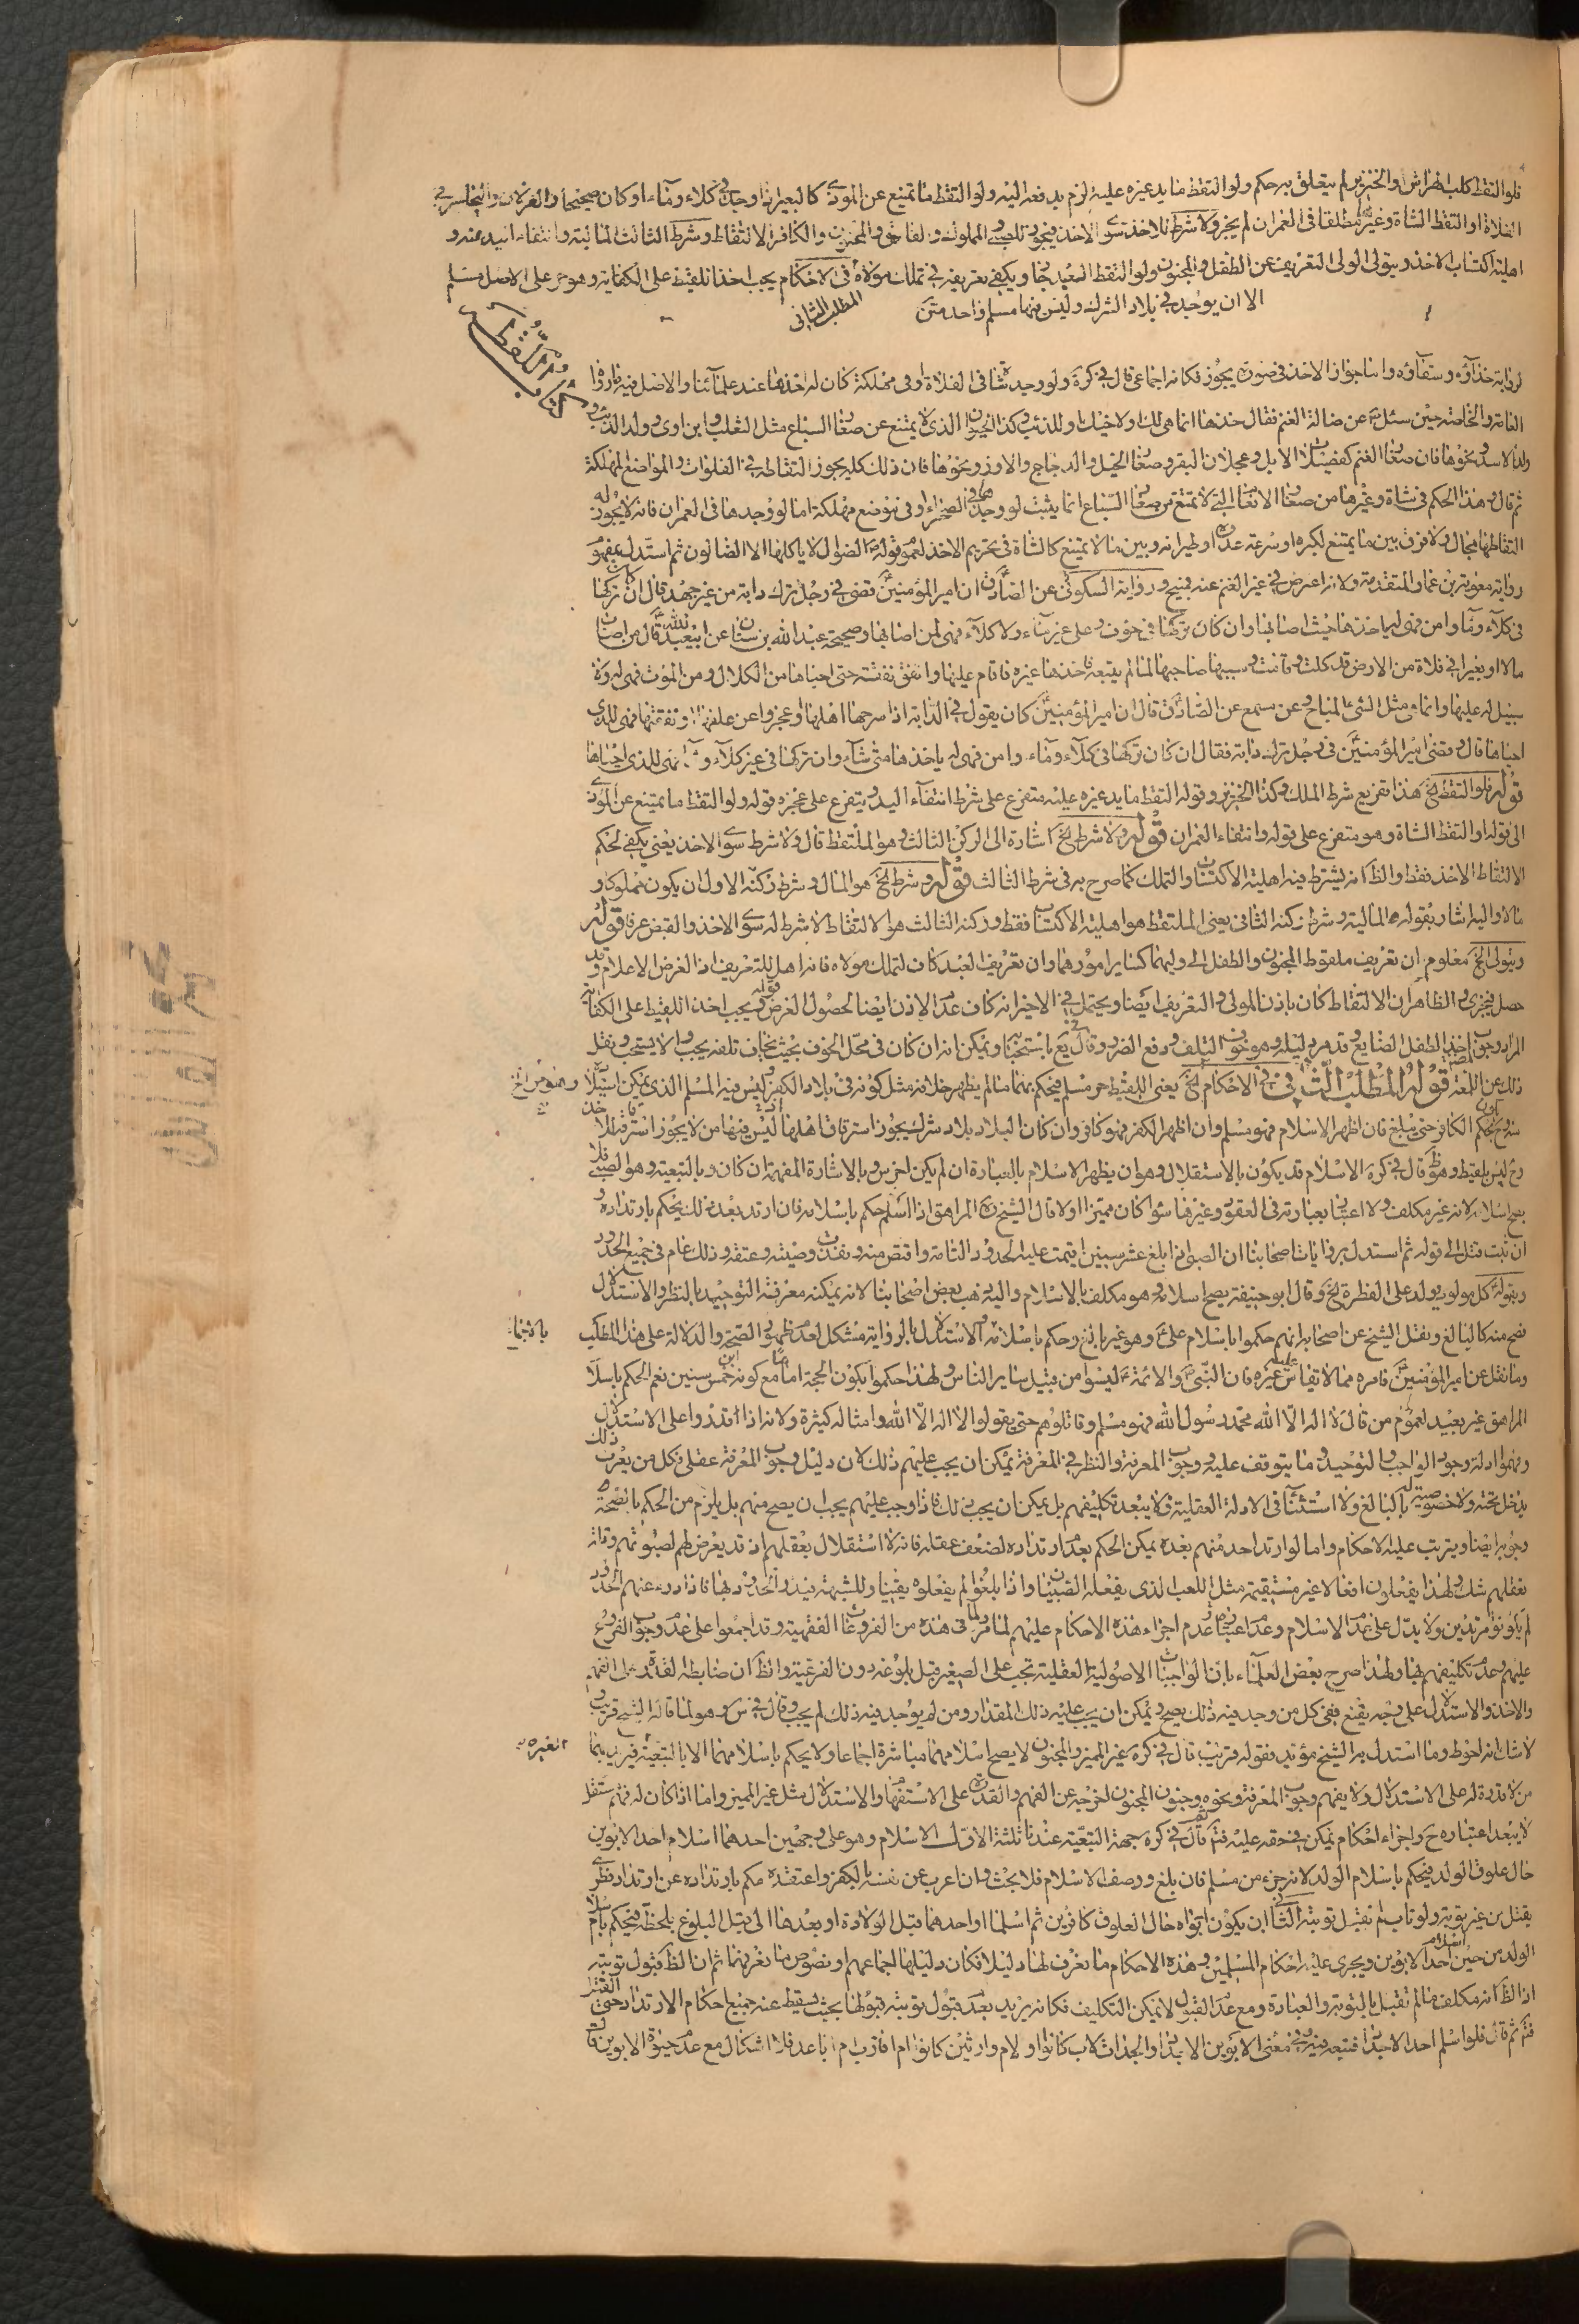 فلو التقط كلب الهراش والخنزير لم يتعلق به حكم ولو التقط ما يد غيره عليه لزم يد فعه اليه ولو التقط ما يمتنع عن الموذى كالبعير اذا وجد فى كلاء وماء او كان صحيحا والغزلان واليحامير فى
الفلاة او التقط الشاة وغيرها مطلقا فى العمران لم يجز ولا شرط للاخذ سوى الاخذ فيجوز للصبى والمملوك والفاسق والمجنون والكافر الالتقاط وشرط الثالث المالية وانتفاء اليد عنه و
اهلية اكتساب الاخذ ويتولى الولى التعريف عن الطفل والمجنون ولو التقط العبد جاز ويكفى تعريفه فى تملك مولاه فى الاحكام يجب اخذ اللقيط على الكفاية وهو حر على الاصل مسلم
الا ان يوجد فى بلاد الشرك وليس فيها مسلم واحد
المطلب الثانى
كتاب اللقطة
لرواية حذآؤه وسقآؤه واما جواز الاخذ فى صورة يجوز فكانه اجماعى قال فى كره ولو وجد شاة فى الفلاة او فى مهلكة كان له اخذها عند علمآئنا والاصل فيه ما رواه
العامة والخاصة حين سئل عن ضالة الغنم فقال خذها انما هى لك او لاخيك او للذئب وكذا الحيوان الذى لا يمتنع عن صغار السباع مثل الثعلب وابن اوى وولد الذئب و
ولد الاسد ونحوها فان صغار الغنم كفصلان الابل وعجلان البقر وصغار الخيل والدجاج والاوز ونحوها فان ذلك كله يجوز التقاطه فى الفلوات والمواضع المهلكة
ثم قال وهذا الحكم فى شاة وغيرها من صغار الانعام التى لا تمتنع من صغار السباع انما يثبت لو وجدها فى الصحراء او فى موضع مهلكة اما لو وجدها فى العمران فانه لا يجوز له
التقاطها بحال ولا فرق بين ما يمتنع لكبره او سرعة عدوه او طيرانه وبين ما لا يمتنع كالشاة فى تحريم الاخذ لعموم قوله الضوال لا ياكلها الا الضالون ثم استدل بمفهوم
رواية معوية بن عمار المتقدمة ولانه اعرض فى غير الغنم عنه فبيح ورواية السكونى عن الصادق ان امير المؤمنين قضى فى رجل ترك دابة من غير جهد قال ان كان تركها
فى كلآء ومآء وامن فهى له ياخذها حيث اصابها وان كان تركها فى خوف وعلى غير مآء ولا كلآء فهى لمن اصابها وصحيحة عبد الله بن سنان عن ابى عبد الله قال من اصاب
مالا او بعيرا فى فلاة من الارض قد كلت وقامت وسيبها صاحبها لما لم يتبعه فاخذها غيره فاقام عليها وانفق نفقته حتى احياها من الكلال ومن الموت فهى له ولا
سبيل له عليها وانما هى مثل الشئ المباح وعن مسمع عن الصادق قال ان امير المؤمنين كان يقول فى الدابة اذا سرحها اهلها او عجزوا عن علفها او نفقتها فهى للذى
احياها قال وقضى امير المؤمنين فى رجل ترك دابة فقال ان كان تركها فى كلآء ومآء وامن فهى له ياخذها متى شآء وان تركها فى غير كلآء ومآء فهى للذى احياها
قوله فلو التقط الخ هذا تفريع شرط الملك وكذا الخنزير وقوله التقط ما يد غيره عليه متفرع على شرط انتفآء اليد ويتفرع على عجزه قوله ولو التقط ما يمتنع عن الموذى
الى قوله او التقط الشاة وهو متفرع على قوله وانتفاء العمران قوله ولا شرط الخ اشارة الى الركن الثالث وهو الملتقط قال ولا شرط سوى الاخذ يعنى يكفى لحكم
الالتقاط الاخذ فقط والظ انه يشترط فيه اهلية الاكتساب والتملك كما صرح به فى شرط الثالث قوله وشرط الخ هو المال وشرط ركنه الاول ان يكون مملوكا و
مالا واليه اشار بقوله المالية وشرط ركنه الثانى يعنى الملتقط هو اهلية الاكتساب فقط وركنه الثالث هو الالتقاط لا شرط له سوى الاخذ والقبض عرفا قوله
ويتولى الخ معلوم ان تعريف ملقوط المجنون والطفل الى وليهما كساير امورهما وان تعريف العبد كاف لتملك مولاه فانه اهل للتعريف اذ الغرض الاعلام وقد
حصل فيجزى والظاهر ان الالتقاط كان باذن المولى والتعريف ايضا ويحتمل فى الاخير انه كاف عدم الاذن ايضا لحصول الغرض قوله ويجب اخذ اللقيط على الكفاية
المراد وجوب اخذ الطفل الضايع وقد مر دليله وهو خوف التلف ودفع الضرر وقال يع باستحبابه ويمكن انه ان كان فى محل الخوف بحيث يخاف تلفه يجب والا يستحب ونقل
ذلك عن اللمعة قوله المطلب الثانى فى الاحكام الخ يعنى اللقيط حر مسلم فيحكم بهما ما لم يظهر خلافه مثل كونه فى بلاد الكفر وليس فيه المسلم الذى يمكن استيلاد
منه وح لحكم الكافر حتى يبلغ فان اظهر الاسلام فهو مسلم وان اظهر الكفر فهو كافر وان كان البلاد بلاد شرك يجوز استرقاق اهلها ليس فيها من لا يجوز استرقاقه
وح ليس بلقيط وهو ظ قال فى كره الاسلام قد يكون بالاستقلال وهو ان يظهر الاسلام بالعبارة ان لم يكن اخرس وبالاشارة المفهمة ان كان وبالتبعية وهو الصبى فلا
يصح اسلامه لانه غير مكلف ولا اعتبار بعبارته فى العقود وغيرها سواء كان مميزا اولا قال الشيخ المراهق اذا اسلم حكم باسلامه فان ارتد بعد ذلك يحكم بارتداده و
ان تبت قتل الى قوله ثم استدل بروايات اصحابنا ان الصبى اذا بلغ عشر سنين اقيمت عليه الحدود التامة واقتص منه ونفذت وصيته وعتقه وذلك عام فى جميع الحدود
وبقوله كل مولود يولد على الفطرة الخ وقال ابو حنيفة يصح اسلامه وهو مكلف بالاسلام واليه ذهب بعض اصحابنا لانه يمكنه معرفة التوحيد بالنظر والاستدلال
فصح منه كالبالغ ونقل الشيخ عن اصحابه انهم حكموا باسلام على وهو غير بالغ وحكم باسلامه والاستدلال بالرواية مشكل لعدم ظهور الصحة والدلالة على هذا المطلب
وما نقل عن امير المؤمنين فامره مما لا يقاس عليه غيره فان النبى والائمة ليسوا من قبيل ساير الناس ولهذا حكموا بكون الحجة اماما مع كونه ابن خمس سنين نعم الحكم باسلام
المراهق غير بعيد لعموم من قال لا اله الا الله محمد رسول الله فهو مسلم وقاتلوهم حتى يقولوا لا اله الا الله وامثاله كثيرة ولانه اذا اقدروا على الاستدلال
وفهموا ادلة وجود الواجب والتوحيد وما يتوقف عليه وجوب المعرفة والنظر فى المعرفة يمكن ان يجب عليهم ذلك لان دليل وجوب المعرفة عقلى فكل من يعرف ذلك
يدخل تحته ولا خصوصية له بالبالغ ولا استثناء فى الادلة العقلية فلا يبعد تكليفهم بل يمكن ان يجب ذلك فاذا وجب عليهم يجب ان يصح منهم بل يلزم من الحكم بالصحة
وجوبه ايضا ويترتب عليه الاحكام واما لو ارتد احد منهم بعده يمكن الحكم بعدم ارتداده لضعف عقله فانه لا استقلال بعقلهم اذ قد يعرض لهم لصبوتهم وقلة
تعقلهم شك ولهذا يفعلون افعالا غير مستقيمة مثل اللعب الذى يفعله الصبيان واذا بلغوا لم يفعلوه يقينا وللشبهة فيه والحدود فاذا درء عنهم الحدود
لم ياتونه مرتدين ولا يدل على عدم الاسلام وعدم اعتباره عدم اجراء هذه الاحكام عليهم لما مر فى هذه من الفروعات الفقهية وقد اجمعوا على عدم وجوب الفروع
عليهم وعدم تكليفهم بها ولهذا صرح بعض العلمآء بان الواجبات الاصولية العقلية تجب على الصغير قبل بلوغه دون الفرعية والظ ان ضابطه القدرة على الفهم
والاخذ والاستدلال على وجه يقنع ففى كل من وجد فيه ذلك يصح ويمكن ان يجب عليه ذلك المقدار ومن لم يوجد فيه ذلك لم يجب وقال فى س وهو لما قاله الشيخ قريب و
لا شك انه احوط وما استدل به الشيخ مؤيد فقوله قريب قال فى كره غير المميز والمجنون لا يصح اسلامهما مباشرة اجماعا ولا يحكم باسلامهما الا بالتبعية
من لا قدرة له على الاستدلال ولا يفهم وجوب المعرفة ونحوه وجنون المجنون لخرجه عن الفهم والقدرة على الاستفهام والاستدلال مثل غير المميز واما اذا كان له فهم مستقل
لا يبعد اعتباره ح واجراء احكام يمكن فى حقه عليه فتم قال فى كره جهة التبعية عندنا ثلثة الاول الاسلام وهو على وجهين احدهما اسلام احد الابوين
حال علوق الولد فيحكم باسلام الولد لانه جزء من مسلم فان بلغ ووصف الاسلام فلا بحث وان اعرب عن نفسه بالكفر واعتقده حكم بارتداده عن ارتداد فطرى
يقتل من غير توبة ولو تاب لم تقبل توبته الثانى ان يكون ابواه حال العلوق كافرين ثم اسلما او احدهما قبل الولادة او بعدها الى قبل البلوغ بلحظة فيحكم باسلام
الولد من حين اسلام احد الابوين ويجرى عليه احكام المسلمين وهذه الاحكام ما نعرف لها دليلا فكان دليلها اجماعهم ونصوص ما نعرفها ثم ان الظ قبول توبته
اذ الظ انه مكلف فما لم تقبل بالتوبة والعبادة ومع عدم القبول لا يمكن التكليف فكانه يريد بعدم قبول توبته قبولها بحيث يسقط عنه جميع احكام الارتداد حتى القتل
فتم ثم قال فلو اسلم احد الاجداد فتبعه فى معنى الابوين الاجداد والجدات لاب كانوا او لام وارثين كانوا ام اقارب ام اباعد فلا اشكال مع عدم حيوة الابوين